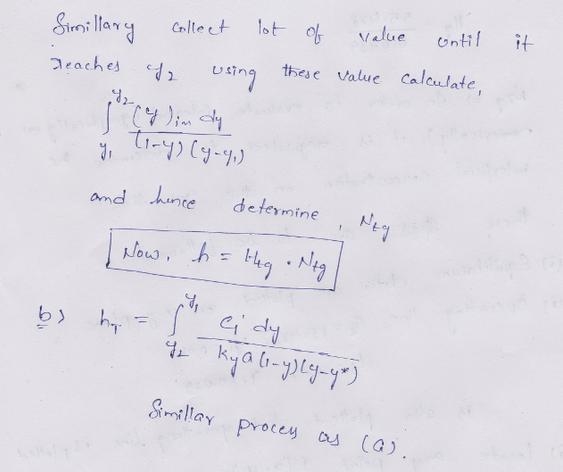 Simillary collect lot of value until it
reaches y2 using these value calculate,
∫ y1 y2 (y)im dy / (1-y)(y-y1)
and hence determine, Ntg
Now, h = Htg · Ntg
b) hT = ∫ y2 y1 Gi dy / kya(1-y)(y-y*)
Simillar process as (a).